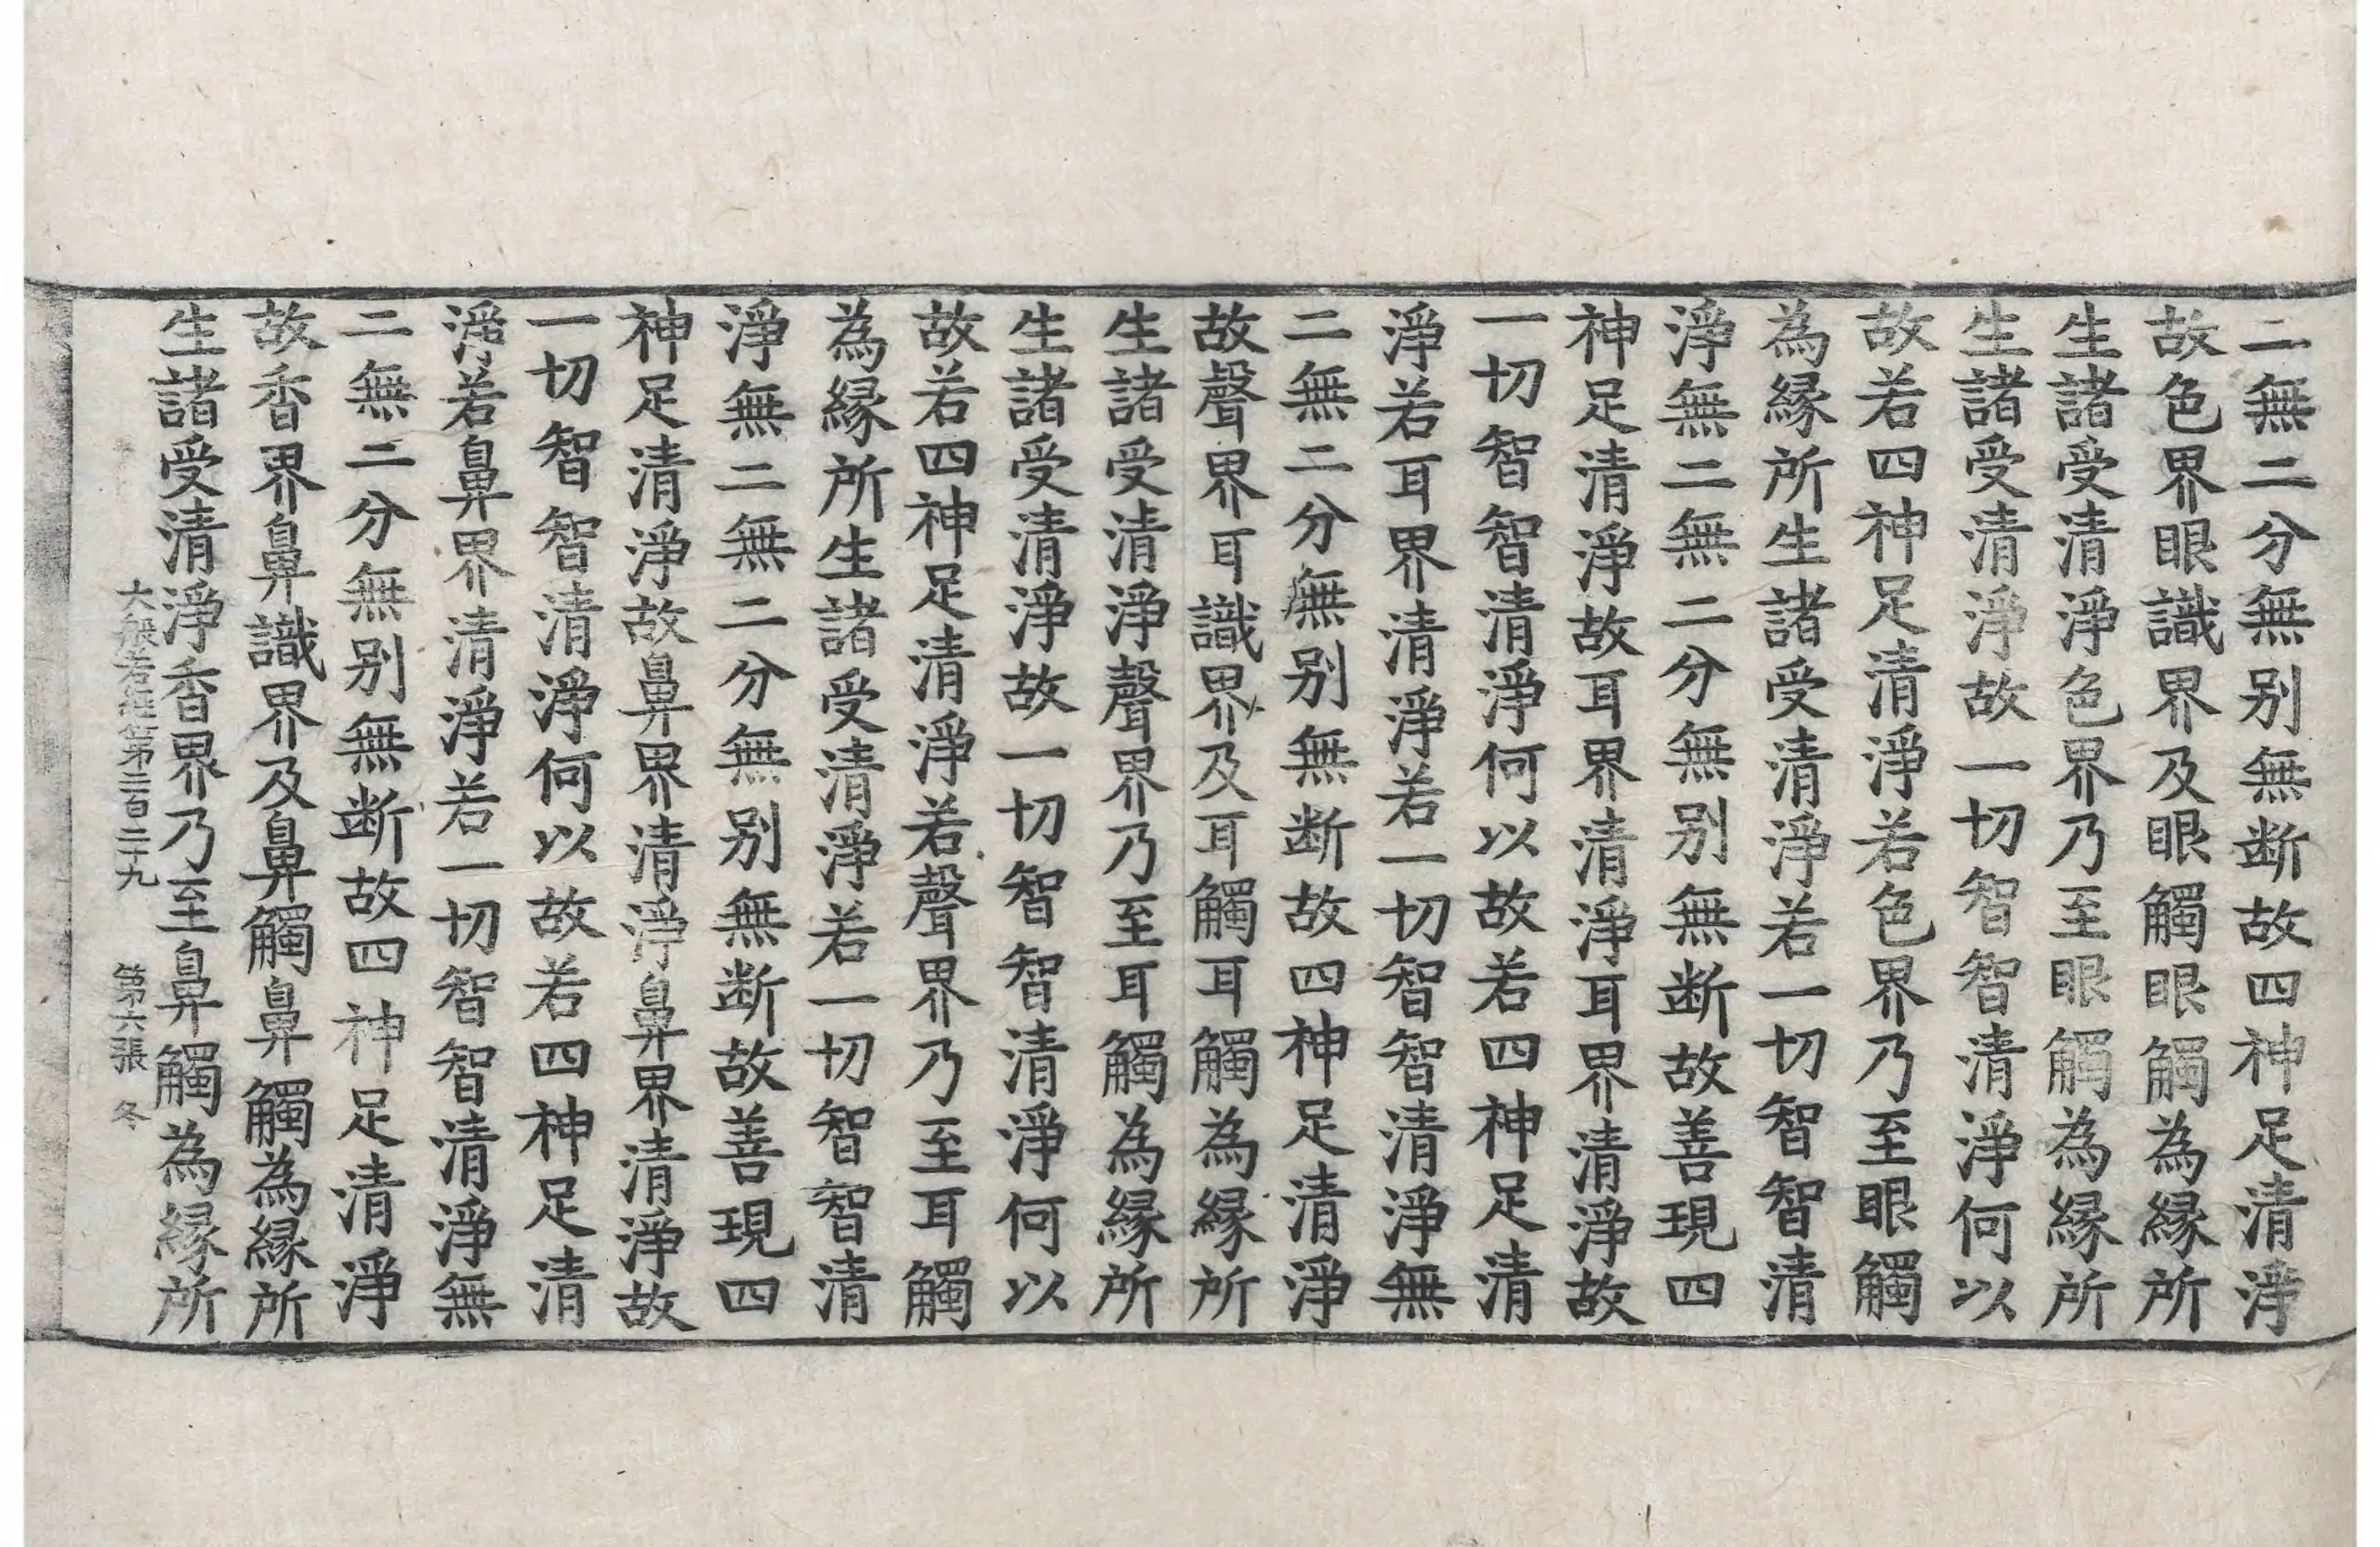 二無二分無别無断故四神足清淨
故色界眼識界及眼觸眼觸為縁所
生諸受清淨色界乃至眼觸為縁所
生諸受清淨故一切智智清淨何以
故若四神足清淨若色界乃至眼觸
為縁所生諸受清淨若一切智智清
淨無二無二分無别無断故善現四
神足清淨故耳界清淨耳界清淨故
一切智智清淨何以故若四神足清
淨若耳界清淨若一切智智清淨無
二無二分無别無断故四神足清淨
故聲界耳識界及耳觸耳觸為縁所
生諸受清淨聲界乃至耳觸為縁所
生諸受清淨故一切智智清淨何以
故若四神足清淨若聲界乃至耳觸
為縁所生諸受清淨若一切智智清
淨無二無二分無别無断故善現四
神足清淨故鼻界清淨鼻界清淨故
一切智智清淨何以故若四神足清
淨若鼻界清淨若一切智智清淨無
二無二分無别無断故四神足清淨
故香界鼻識界及鼻觸鼻觸為縁所
生諸受清淨香界乃至鼻觸為縁所
大般若經卷第二百二十九 第六張 冬